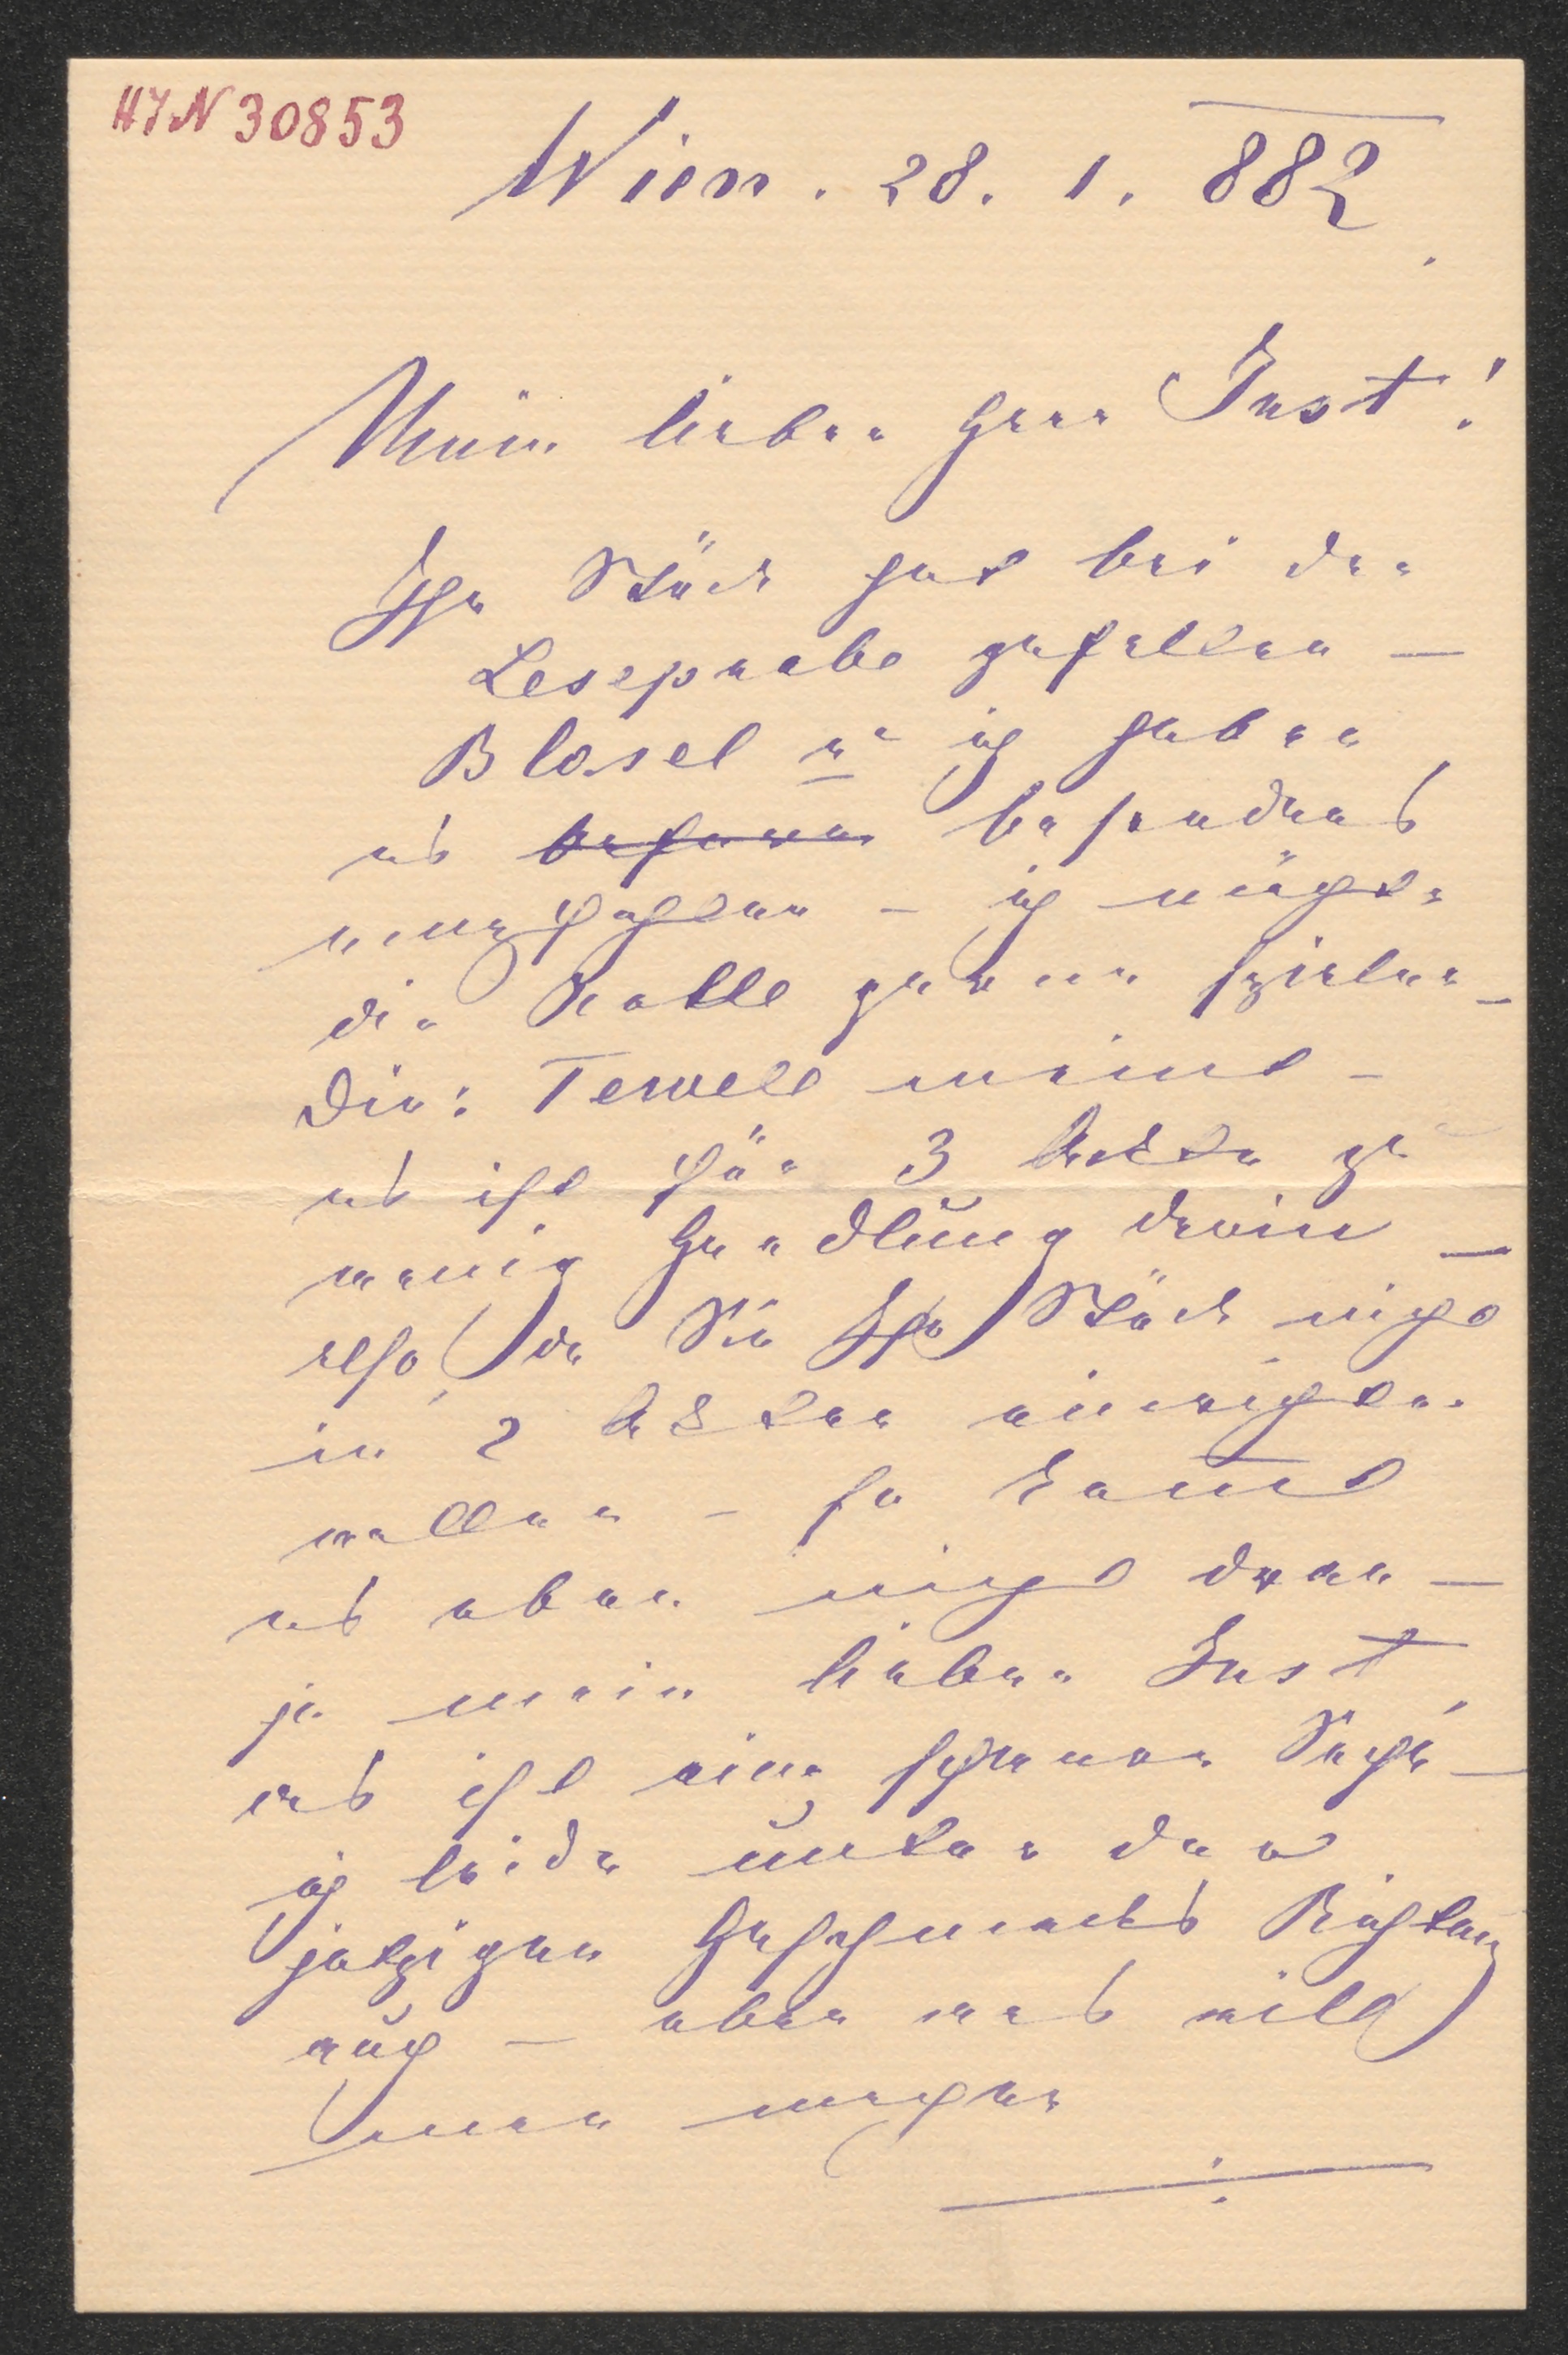 HJN 30853
Wien. 28. 1. 882.
Mein lieber Herr Just!
Ihr Stück hat bei der
Leseprobe gefallen —
Blasel u ich haben
es besonders
empfohlen – ich möchte
die Rolle gerne spielen –
Dir: Tewele meint –
es ist für 3 Ackte zu
wenig Handlung darin —
also, da Sie Ihr Stück nicht
in 2 Akten einreichen
wollen – so kommt
es eben nicht dran —
ja mein lieber Just,
es ist eine schwere Sache —
ich leide unter der
jetzigen Geschmacks Richtung
auch — aber was will
man machen